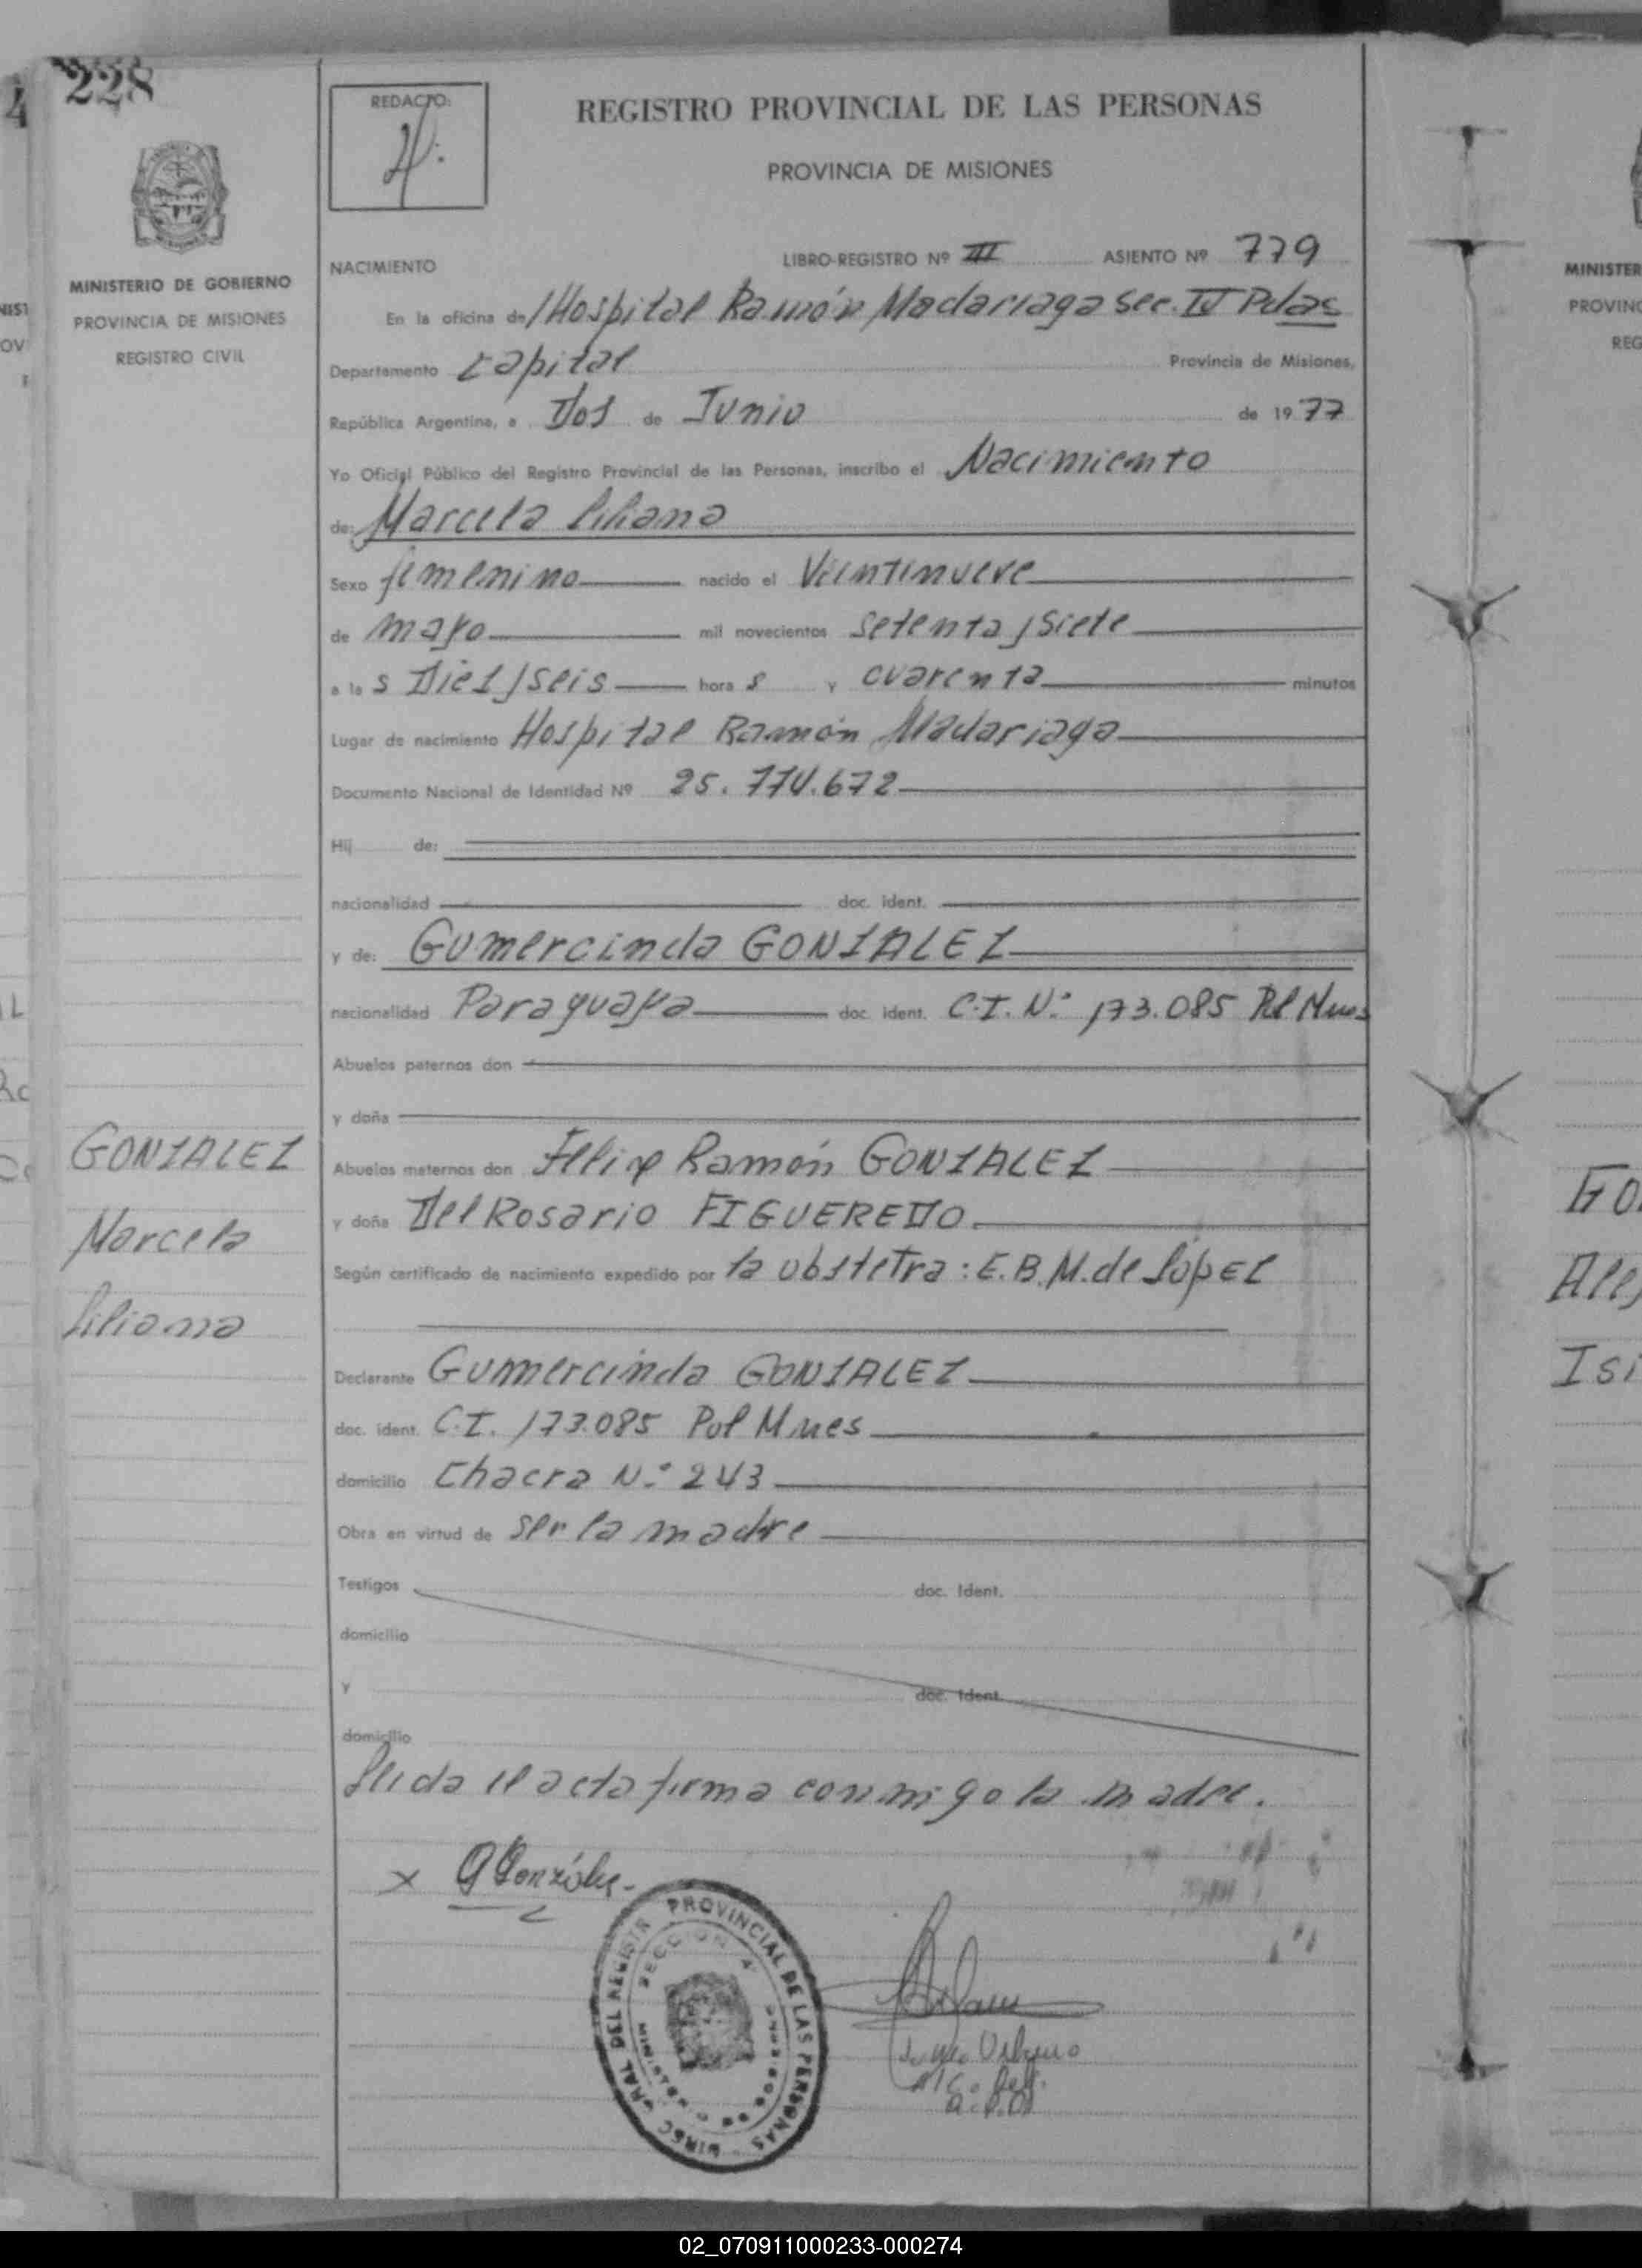 228
MINISTERIO DE GOBIERNO
PROVINCIA DE MISIONES
REGISTRO CIVIL
GONZALEZ
Marcela
Liliana
REDACTO:
REGISTRO PROVINCIAL DE LAS PERSONAS
PROVINCIA DE MISIONES
NACIMIENTO LIBRO-REGISTRO Nº III ASIENTO Nº 779
En la oficina de/Hospital Ramón Madariaga Sec. IV Pdas
Departamento Capital Provincia de Misiones,
República Argentina, a Dos de Junio de 1977
Yo Oficial Público del Registro Provincial de las Personas, inscribo el Nacimiento
de: Marcela Liliana
Sexo femenino nacido el Veintinueve
de mayo mil novecientos setenta y siete
a las Diez y seis horas y cuarenta minutos
Lugar de nacimiento Hospital Ramón Madariaga
Documento Nacional de Identidad Nº 25.774.672
Hij de:
nacionalidad doc. ident.
y de: Gumercinda GONZALEZ
nacionalidad Paraguaya doc. ident. C.I. N.º 173.085 Pol Mnes
Abuelos paternos don
y doña
Abuelos maternos don Felipe Ramón GONZALEZ
y doña Del Rosario FIGUEREDO.
Según certificado de nacimiento expedido por la obstetra: E.B.M. de López
Declarante Gumercinda GONZALEZ
doc. ident. C.I. 173.085 Pol Mnes
domicilio Chacra N.º 243
Obra en virtud de ser la madre
Testigos doc. Ident.
domicilio
y doc. Ident.
domicilio
Leida el acta firma conmigo la madre.
x G González
PROVINCIAL DE LAS PERSONAS
DEL REGISTR
SECCION
MINIST
MINISTER
PROVINC
REG
GO
Ale
Isi
02_070911000233-000274